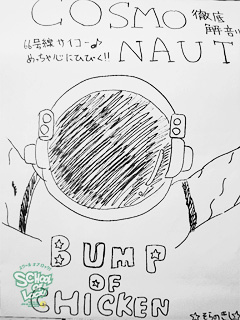 COSMO
NAUT
徹底
解音!!
66号線サイコー♪
めっちゃ心にひびく!!
SCHOOL
OF LOCK!
BUMP
OF
CHICKEN
☆そらのきし☆